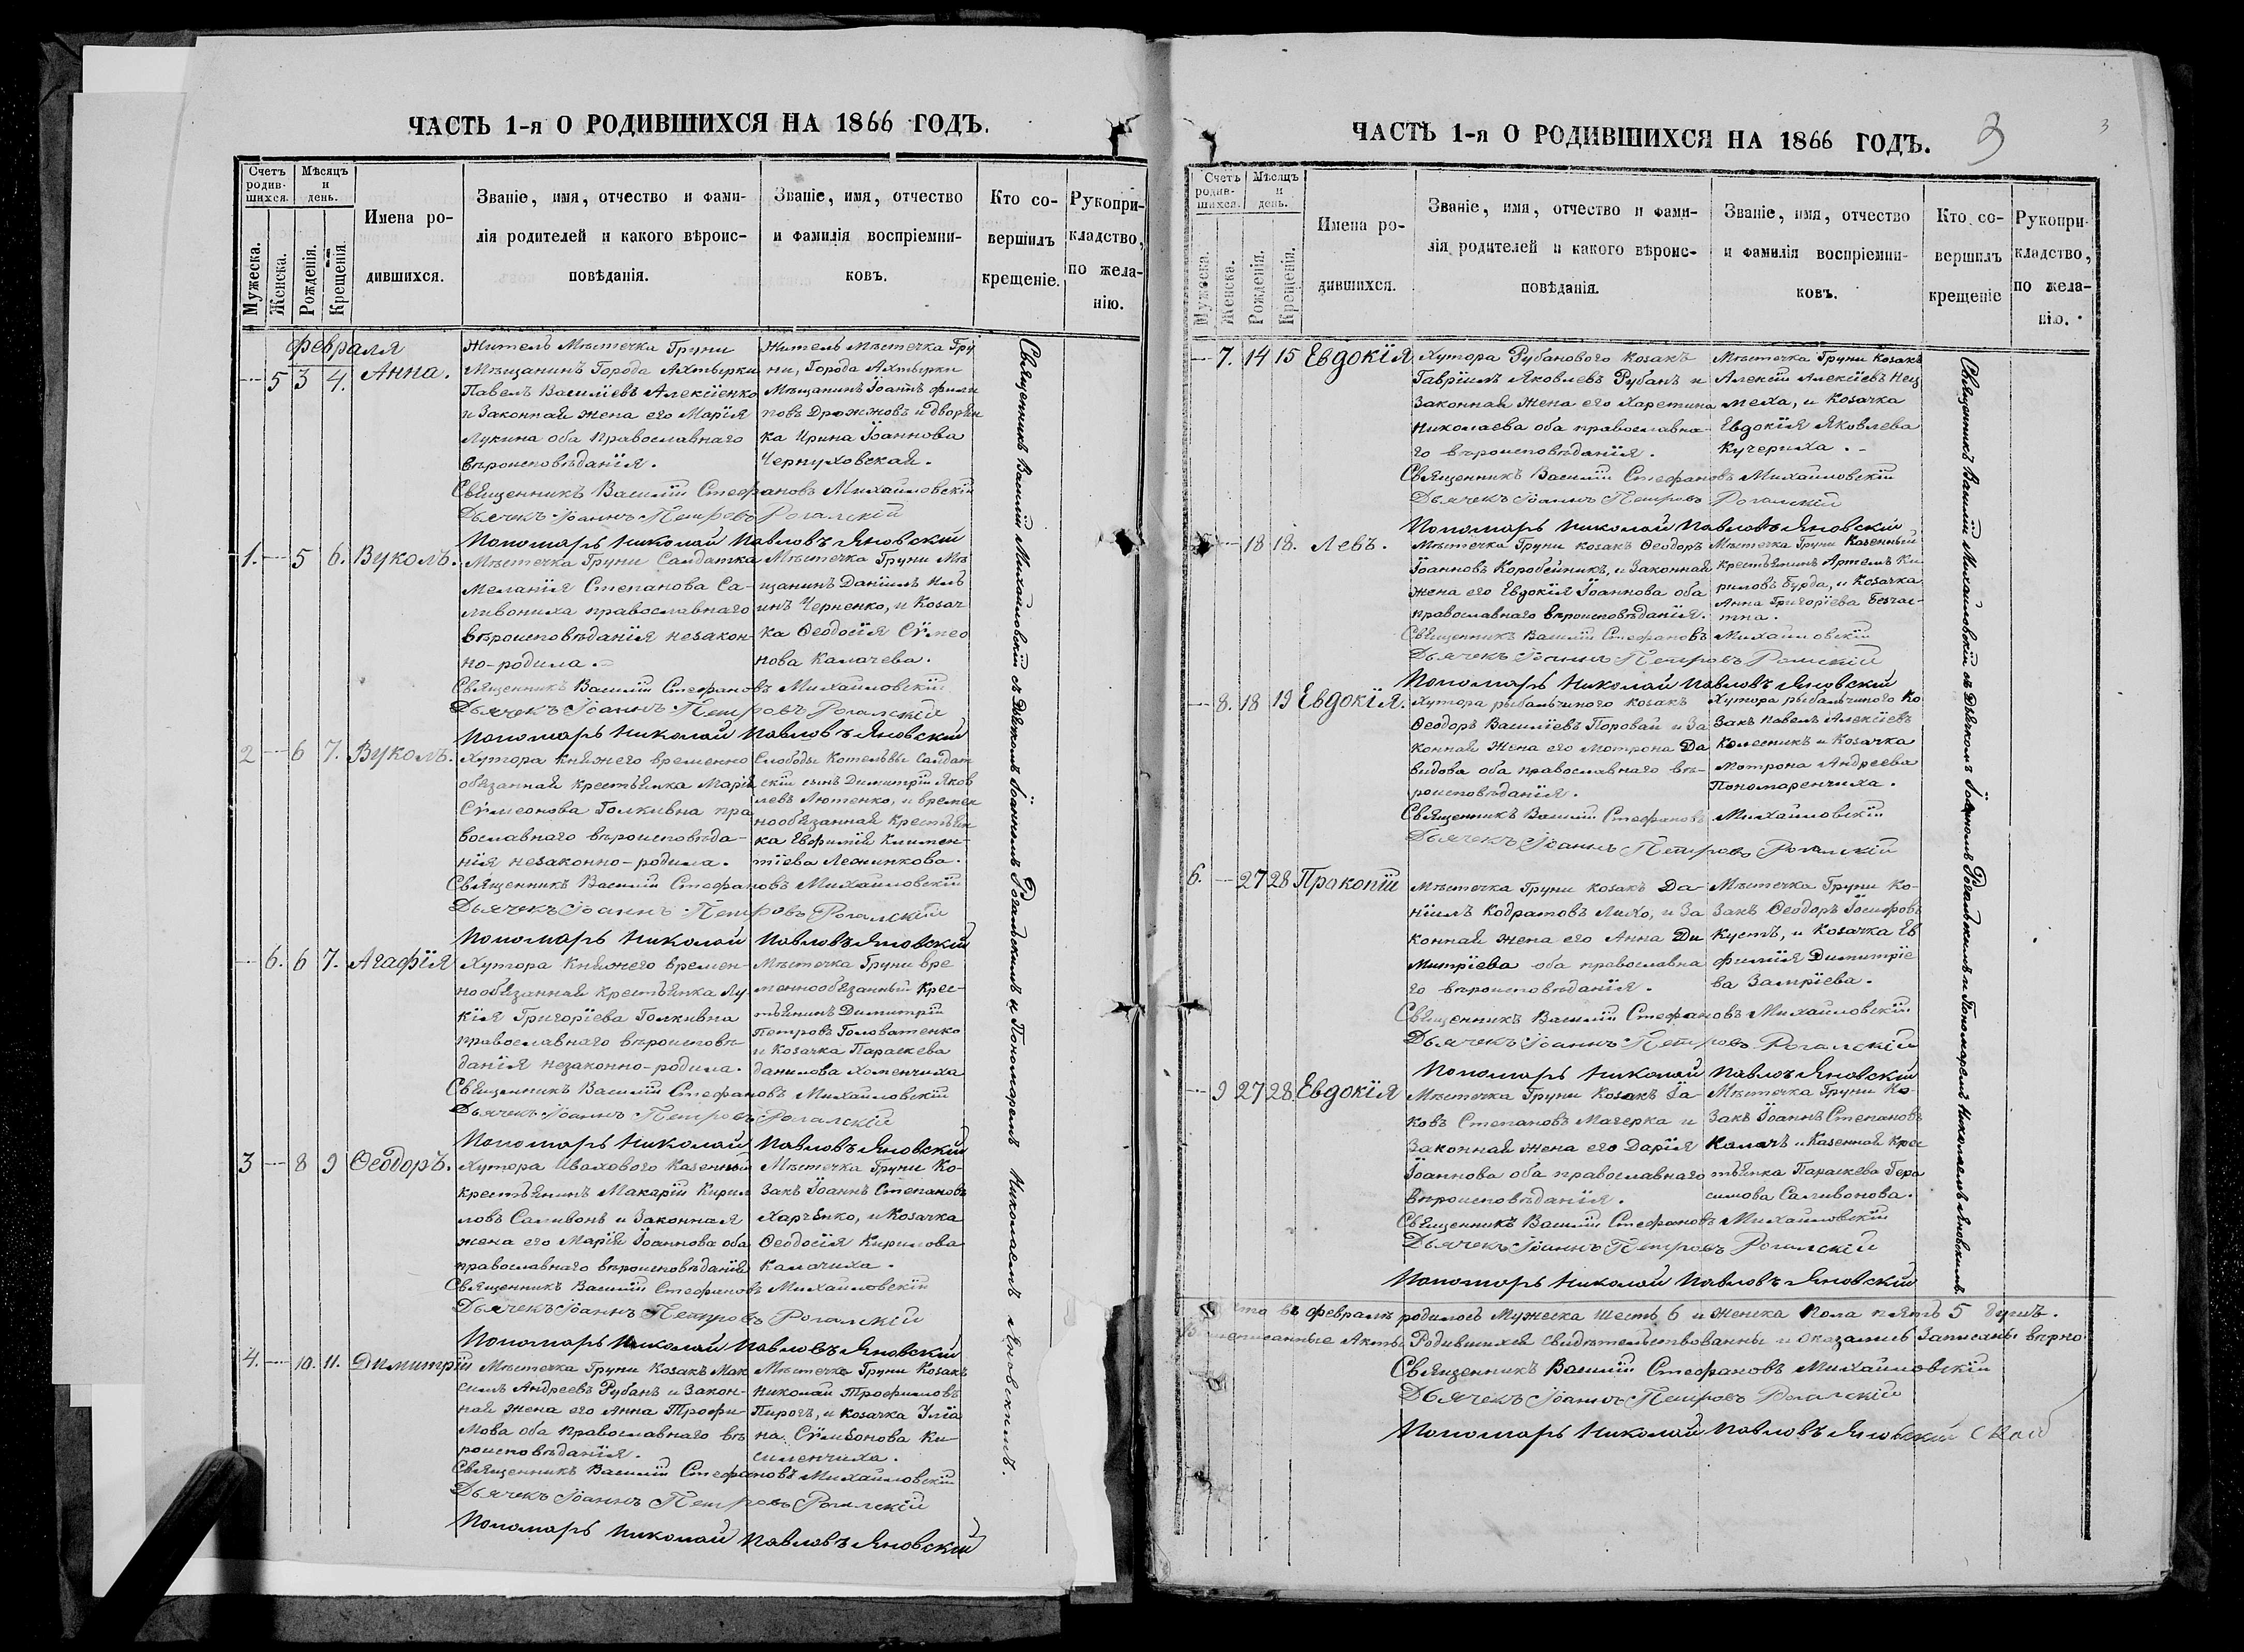 ЧАСТЬ 1-я О РОДИВШИХСЯ НА 1866 ГОДЪ.
Счетъ родившихся.
Мѣсяцъ и день.
Мужеска.
Женска.
Рожденія.
Крещенія.
Имена родившихся.
Званіе, имя, отчество и фами-
лія родителей и какого вѣроис-
повѣданія.
Званіе, имя, отчество
и фамилія воспріемни-
ковъ.
Кто со-
вершилъ
крещеніе.
Рукопри-
кладство,
по жела-
нію.
февраля
5 3 4. Анна.
Житель Мѣстечка Груни
Мѣщанинъ Города Ахтырки
Павелъ Василіевъ Алексіенко
и Законная жена его Марія
Лукина оба Православнаго
вѣроисповѣданія.
Житель Мѣстечка Гру
ни, Города Ахтырки
Мѣщанинъ Іоаннъ фили
повъ Дрожжовъ и дворян
ка Ирина Іоаннова
Чернуховская.
Священникъ Василій Стефановъ Михайловскій
Дьячекъ Іоаннъ Петровъ Рогалскій
Пономарь Николай Павловъ Яновскій
1. 5 6. Вуколъ.
Мѣстечка Груни Салдатка
Меланія Степанова Са-
ливониха православнаго
вѣроисповѣданія незакон-
но-родила.
Мѣстечка Груни Мѣ
щанинъ Даніилъ Иль
инъ Черненко, и Козач
ка Ѳеодосія Сѵмео
нова Калачева.
Священникъ Василій Стефановъ Михайловскій
Дьячекъ Іоаннъ Петровъ Рогалскій
Пономарь Николай Павловъ Яновскій
2 6 7. Вуколъ.
Хутора Княжего временно
обязанная крестьянка Марія
Сѵмеонова Голкивна пра
вославнаго вѣроисповѣда-
нія незаконно-родила.
Слободы Котельвы Салдат
скій сынъ Димитрій Яков
левъ Лютенко, и времен
нообязанная Крестьян
ка Евфимія Климен-
тіева Леонинкова.
Священникъ Василій Стефановъ Михайловскій
Дьячекъ Іоаннъ Петровъ Рогалскій
Пономарь Николай Павловъ Яновскій
6. 6 7. Агафія
Хутора Княжего времен-
нообязанная крестьянка Лу-
кія Григоріева Голкивна
православнаго вѣроисповѣ-
данія незаконно-родила.
Мѣстечка Груни вре
меннообязанный Крес-
тьянинъ Димитрій
Петровъ Головатенко
и Козачка Параскева
данилова Хоменчиха
Священникъ Василій Стефановъ Михайловскій
Дьячекъ Іоаннъ Петровъ Рогалскій
Пономарь Николай Павловъ Яновскій
3 8 9 Ѳеодоръ.
Хутора Ивахового Казенный
крестьянинъ Макарій Кирил
ловъ Саливонъ и Законная
жена его Марія Іоаннова оба
православнаго вѣроисповѣданія
Мѣстечка Груни Ко-
закъ Іоаннъ Степановъ
Харченко, и Козачка
Ѳеодосія Кирилова
Калачиха.
Священникъ Василій Стефановъ Михайловскій
Дьячекъ Іоаннъ Петровъ Рогалскій
Пономарь Николай Павловъ Яновскій
4. 10. 11. Димитрій
Мѣстечка Груни Козакъ Мак
симъ Андреевъ Рубанъ и Закон-
ная жена его Анна Трофи-
мова оба Православнаго вѣ
роисповѣданія.
Мѣстечка Груни Козакъ
Николай Трофимовъ
Пирогъ, и козачка Уліа
на Сѵмеонова Ки-
силенчиха.
Священникъ Василій Стефановъ Михайловскій
Дьячекъ Іоаннъ Петровъ Рогалскій
Пономарь Николай Павловъ Яновскій
Священникъ Василій Михайловскій съ Дьячкомъ Іоанномъ Рогальскимъ и Пономаремъ Николаемъ Яновскимъ.
ЧАСТЬ 1-я О РОДИВШИХСЯ НА 1866 ГОДЪ.
3
3
Счетъ родившихся.
Мѣсяцъ и день.
Мужеска.
Женска.
Рожденія.
Крещенія.
Имена ро-
дившихся.
Званіе, имя, отчество и фами-
лія родителей и какого вѣроис-
повѣданія.
Званіе, имя, отчество
и фамилія воспріемни-
ковъ.
Кто со-
вершилъ
крещеніе
Рукопри-
кладство,
по жела-
нію.
7. 14 15 Евдокія
Хутора Рубанового козакъ
Гавріилъ Яковлевъ Рубанъ и
Законная жена его Харетина
Николаева оба православна-
го вѣроисповѣданія.
Мѣстечка Груни Козакъ
Алексій Алексіевъ
меха, и Козачка
Евдокія Яковлева
Кучериха.
Священникъ Василій Стефановъ Михайловскій
Дьячекъ Іоаннъ Петровъ Рогалскій
Пономарь Николай Павловъ Яновскій
18 18. Левъ.
Мѣстечка Груни козакъ Ѳеодоръ
Іоанновъ Коробейникъ, и Законная
жена его Евдокія Іоаннова оба
православнаго вѣроисповѣданія.
Мѣстечка Груни Казенный
крестьянинъ Артемъ Ки
риловъ Бурда, и Козачка
Анна Григоріева Безчас-
тна.
Священникъ Василій Стефановъ Михайловскій
Дьячекъ Іоаннъ Петровъ Рогалскій
Пономарь Николай Павловъ Яновскій
8. 18 19 Евдокія.
Хутора рыбальчиного козакъ
Ѳеодоръ Василіевъ Поровай и За
конная Жена его Мотрона Да
видова оба православнаго вѣ-
роисповѣданія.
Хутора рыбальчиного Ко
закъ Павелъ Алексіевъ
Колесникъ и Козачка
Мотрона Андреева
Пономоренчиха.
Священникъ Василій Стефановъ Михайловскій
Дьячекъ Іоаннъ Петровъ Рогалскій
6. 27 28 Прокопій
Мѣстечка Груни козакъ Да-
ніилъ Кодратовъ Лихо, и За
конная жена его Анна Ди
митріева оба православна
го вѣроисповѣданія.
Мѣстечка Груни Ко-
закъ Ѳеодоръ Іосифовъ
Кустъ, и Козачка Ев
фимія Димитріе
ва Замріева.
Священникъ Василій Стефановъ Михайловскій
Дьячекъ Іоаннъ Петровъ Рогалскій
Пономарь Николай Павловъ Яновскій
9 27 28 Евдокія
Мѣстечка Груни Козакъ Іа-
ковъ Степановъ Магерка и
Законная жена его Дарія
Іоаннова оба православнаго
вѣроисповѣданія.
Мѣстечка Груни Ко-
закъ Іоаннъ Степановъ
Калачъ и Казенная Крес
тьянка Параскева Гера
симова Саливонова.
Священникъ Василій Стефановъ Михайловскій
Дьячекъ Іоаннъ Петровъ Рогалскій
Пономарь Николай Павловъ Яновскій
Священникъ Василій Михайловскій съ Дьячкомъ Іоанномъ Рогальскимъ и Пономаремъ Николаемъ Яновскимъ.
въ февралѣ родилось Мужеска шесть 6 и женска Пола пять 5 душъ.
Акты Родившихся свидѣтельствованы и Оказались Записаны вѣрно
Священникъ Василій Стефановъ Михайловскій
Дьячекъ Іоаннъ Петровъ Рогалскій
Пономарь Николай Павловъ Яновскій